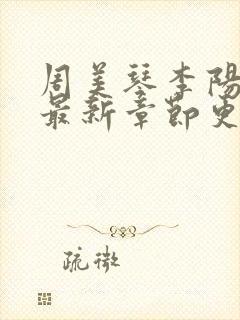 周美琴李陽
最新章節更
疏微